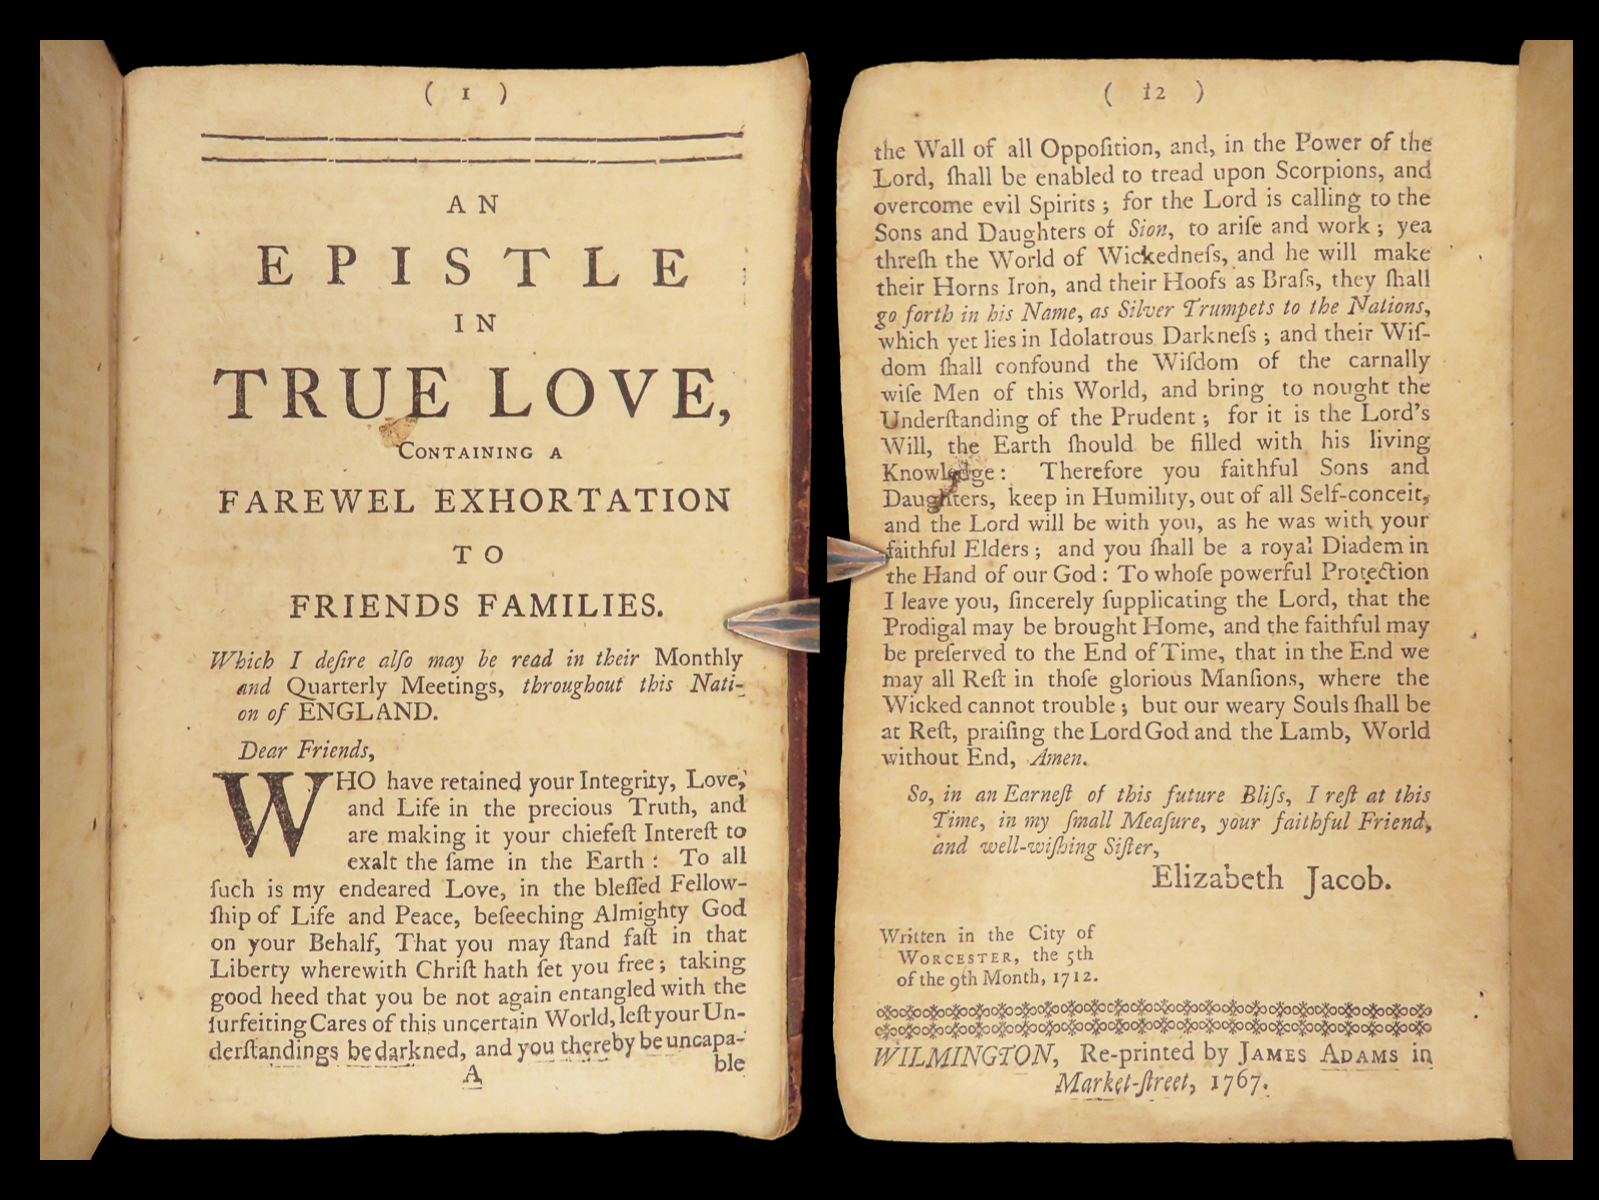 ( 1 )
AN
EPISTLE
IN
TRUE LOVE,
CONTAINING A
FAREWEL EXHORTATION
TO
FRIENDS FAMILIES.
Which I deſire alſo may be read in their Monthly
and Quarterly Meetings, throughout this Nati-
on of ENGLAND.
Dear Friends,
WHO have retained your Integrity, Love,
and Life in the precious Truth, and
are making it your chiefeſt Intereſt to
exalt the ſame in the Earth : To all
ſuch is my endeared Love, in the bleſſed Fellow-
ſhip of Life and Peace, beſeeching Almighty God
on your Behalf, That you may ſtand faſt in that
Liberty wherewith Chriſt hath ſet you free ; taking
good heed that you be not again entangled with the
ſurfeiting Cares of this uncertain World, leſt your Un-
derſtandings be darkned, and you thereby be uncapa-
A
ble
( 12 )
the Wall of all Oppoſition, and, in the Power of the
Lord, ſhall be enabled to tread upon Scorpions, and
overcome evil Spirits ; for the Lord is calling to the
Sons and Daughters of Sion, to ariſe and work ; yea
threſh the World of Wickedneſs, and he will make
their Horns Iron, and their Hoofs as Braſs, they ſhall
go forth in his Name, as Silver Trumpets to the Nations,
which yet lies in Idolatrous Darkneſs ; and their Wiſ-
dom ſhall confound the Wiſdom of the carnally
wiſe Men of this World, and bring to nought the
Underſtanding of the Prudent ; for it is the Lord's
Will, the Earth ſhould be filled with his living
Knowledge : Therefore you faithful Sons and
Daughters, keep in Humility, out of all Self-conceit,
and the Lord will be with you, as he was with your
faithful Elders ; and you ſhall be a royal Diadem in
the Hand of our God : To whoſe powerful Protection
I leave you, ſincerely ſupplicating the Lord, that the
Prodigal may be brought Home, and the faithful may
be preſerved to the End of Time, that in the End we
may all Reſt in thoſe glorious Manſions, where the
Wicked cannot trouble ; but our weary Souls ſhall be
at Reſt, praiſing the Lord God and the Lamb, World
without End, Amen.
So, in an Earneſt of this future Bliſs, I reſt at this
Time, in my ſmall Meaſure, your faithful Friend,
and well-wiſhing Siſter,
Elizabeth Jacob.
Written in the City of
WORCESTER, the 5th
of the 9th Month, 1712.
WILMINGTON, Re-printed by JAMES ADAMS in
Market-ſtreet, 1767.